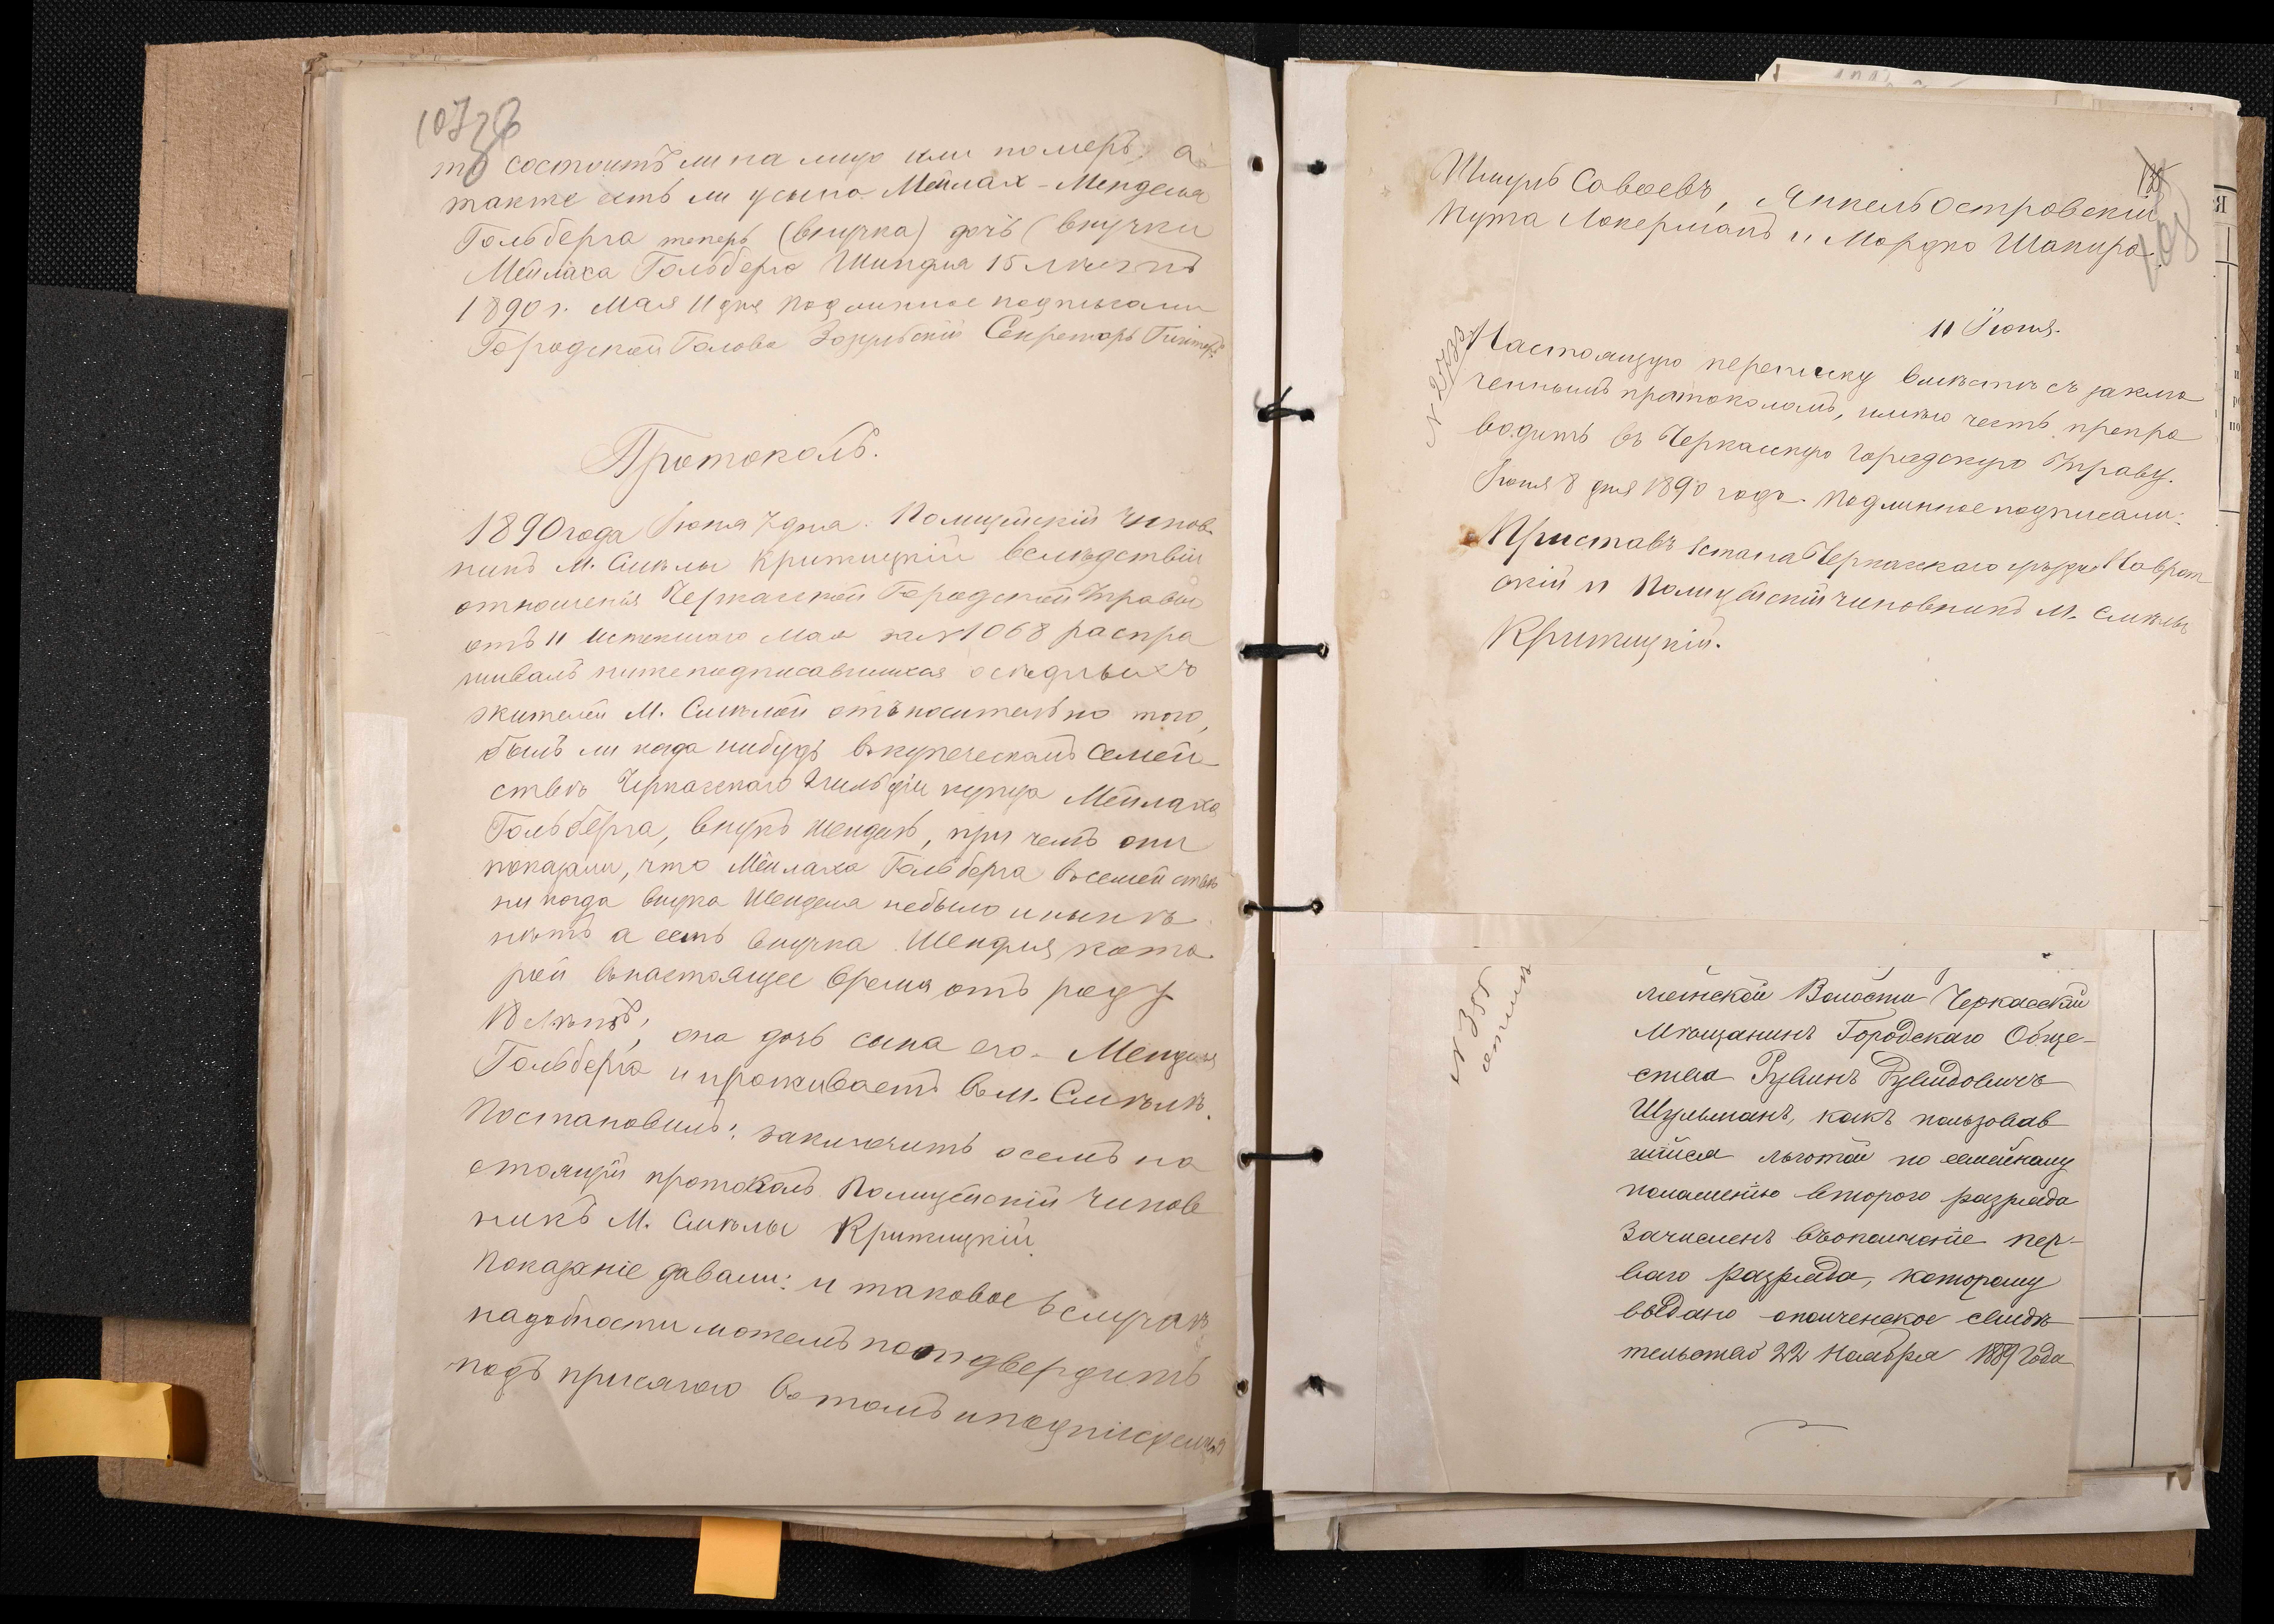 107
то состоитъ ли на лицо или померъ, а
также есть ли у сына Мейлах-Менделя
Гольберга теперь (внучка) дочь (внучки
Мейлаха Гольберга Шендля 15 лѣтъ
1890 г. Мая 11 дня подлинное подписали
Городской Голова Секретарь
Протоколъ.
1890 года Іюня 7 дня. Полицейскій чинов
никъ М. Смѣлы Крижицкій вслѣдствіи
отношенія Черкасской Городской Управы
отъ 11 истекшаго Мая за № 1068 распра
шивалъ нижеподписавшихся осѣдлыхъ
жителей М. Смѣлой отъносительно того,
былъ ли когда нибудь въ купеческомъ семей
ствѣ Черкасскаго 2 гильдіи купца Мейлаха
Гольберга, внукъ Шендель, при чемъ они
показали, что Мейлаха Гольберга въ семействѣ
ни когда внука Шенделя небыло и нынѣ
нѣтъ а есть внучка Шендля кото
рой въ настоящее время отъ роду
18 лѣтъ, она дочь сына его Менделя
Гольберга и проживаетъ въ м. Смѣлѣ.
Постановилъ: заключить о семъ на
стоящій протоколъ Полицейскій чинов
никъ М. Смѣлы Крижицкій.
Показаніе давали: и таковое въ случаѣ
надобности можемъ поотдвердить
подъ присягою въ томъ и подписуемся
108
Шмуль Совоевъ, Янкель Островскій
Нута Локерманъ и Мордко Шапиро.
11 Іюня.
№ 2733
Настоящую переписку вмѣстѣ съ заклю
ченнымъ протоколомъ, имѣю честь препро
водить въ Черкасскую городскую Управу.
Іюня 8 дня 1890 года. Подлинное подписали:
Приставъ 1 стана Черкасскаго уѣзда
скій и Полицейскій чиновникъ М. Смѣлы
Крижицкій.
№ 355
лянской Волости Черкасскій
Мѣщанинъ Городскаго Обще-
ства Рувинъ Рувидовичъ
Шульманъ, какъ пользовав
шійся льготой по семейному
положенію второго разряда
Зачисленъ въ ополченіе пер-
ваго разряда, которому
выдано ополченское свидѣ
тельство 22 Ноября 1889 Года